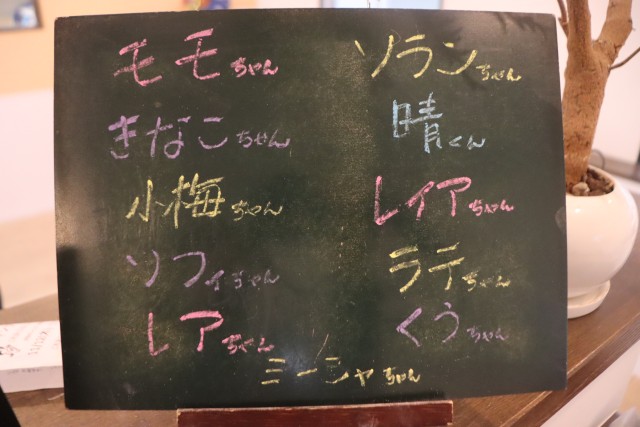 モモちゃん
きなこちゃん
小梅ちゃん
ソフィちゃん
レアちゃん
ソランちゃん
晴くん
レイアちゃん
ラテちゃん
くうちゃん
ミーシャちゃん